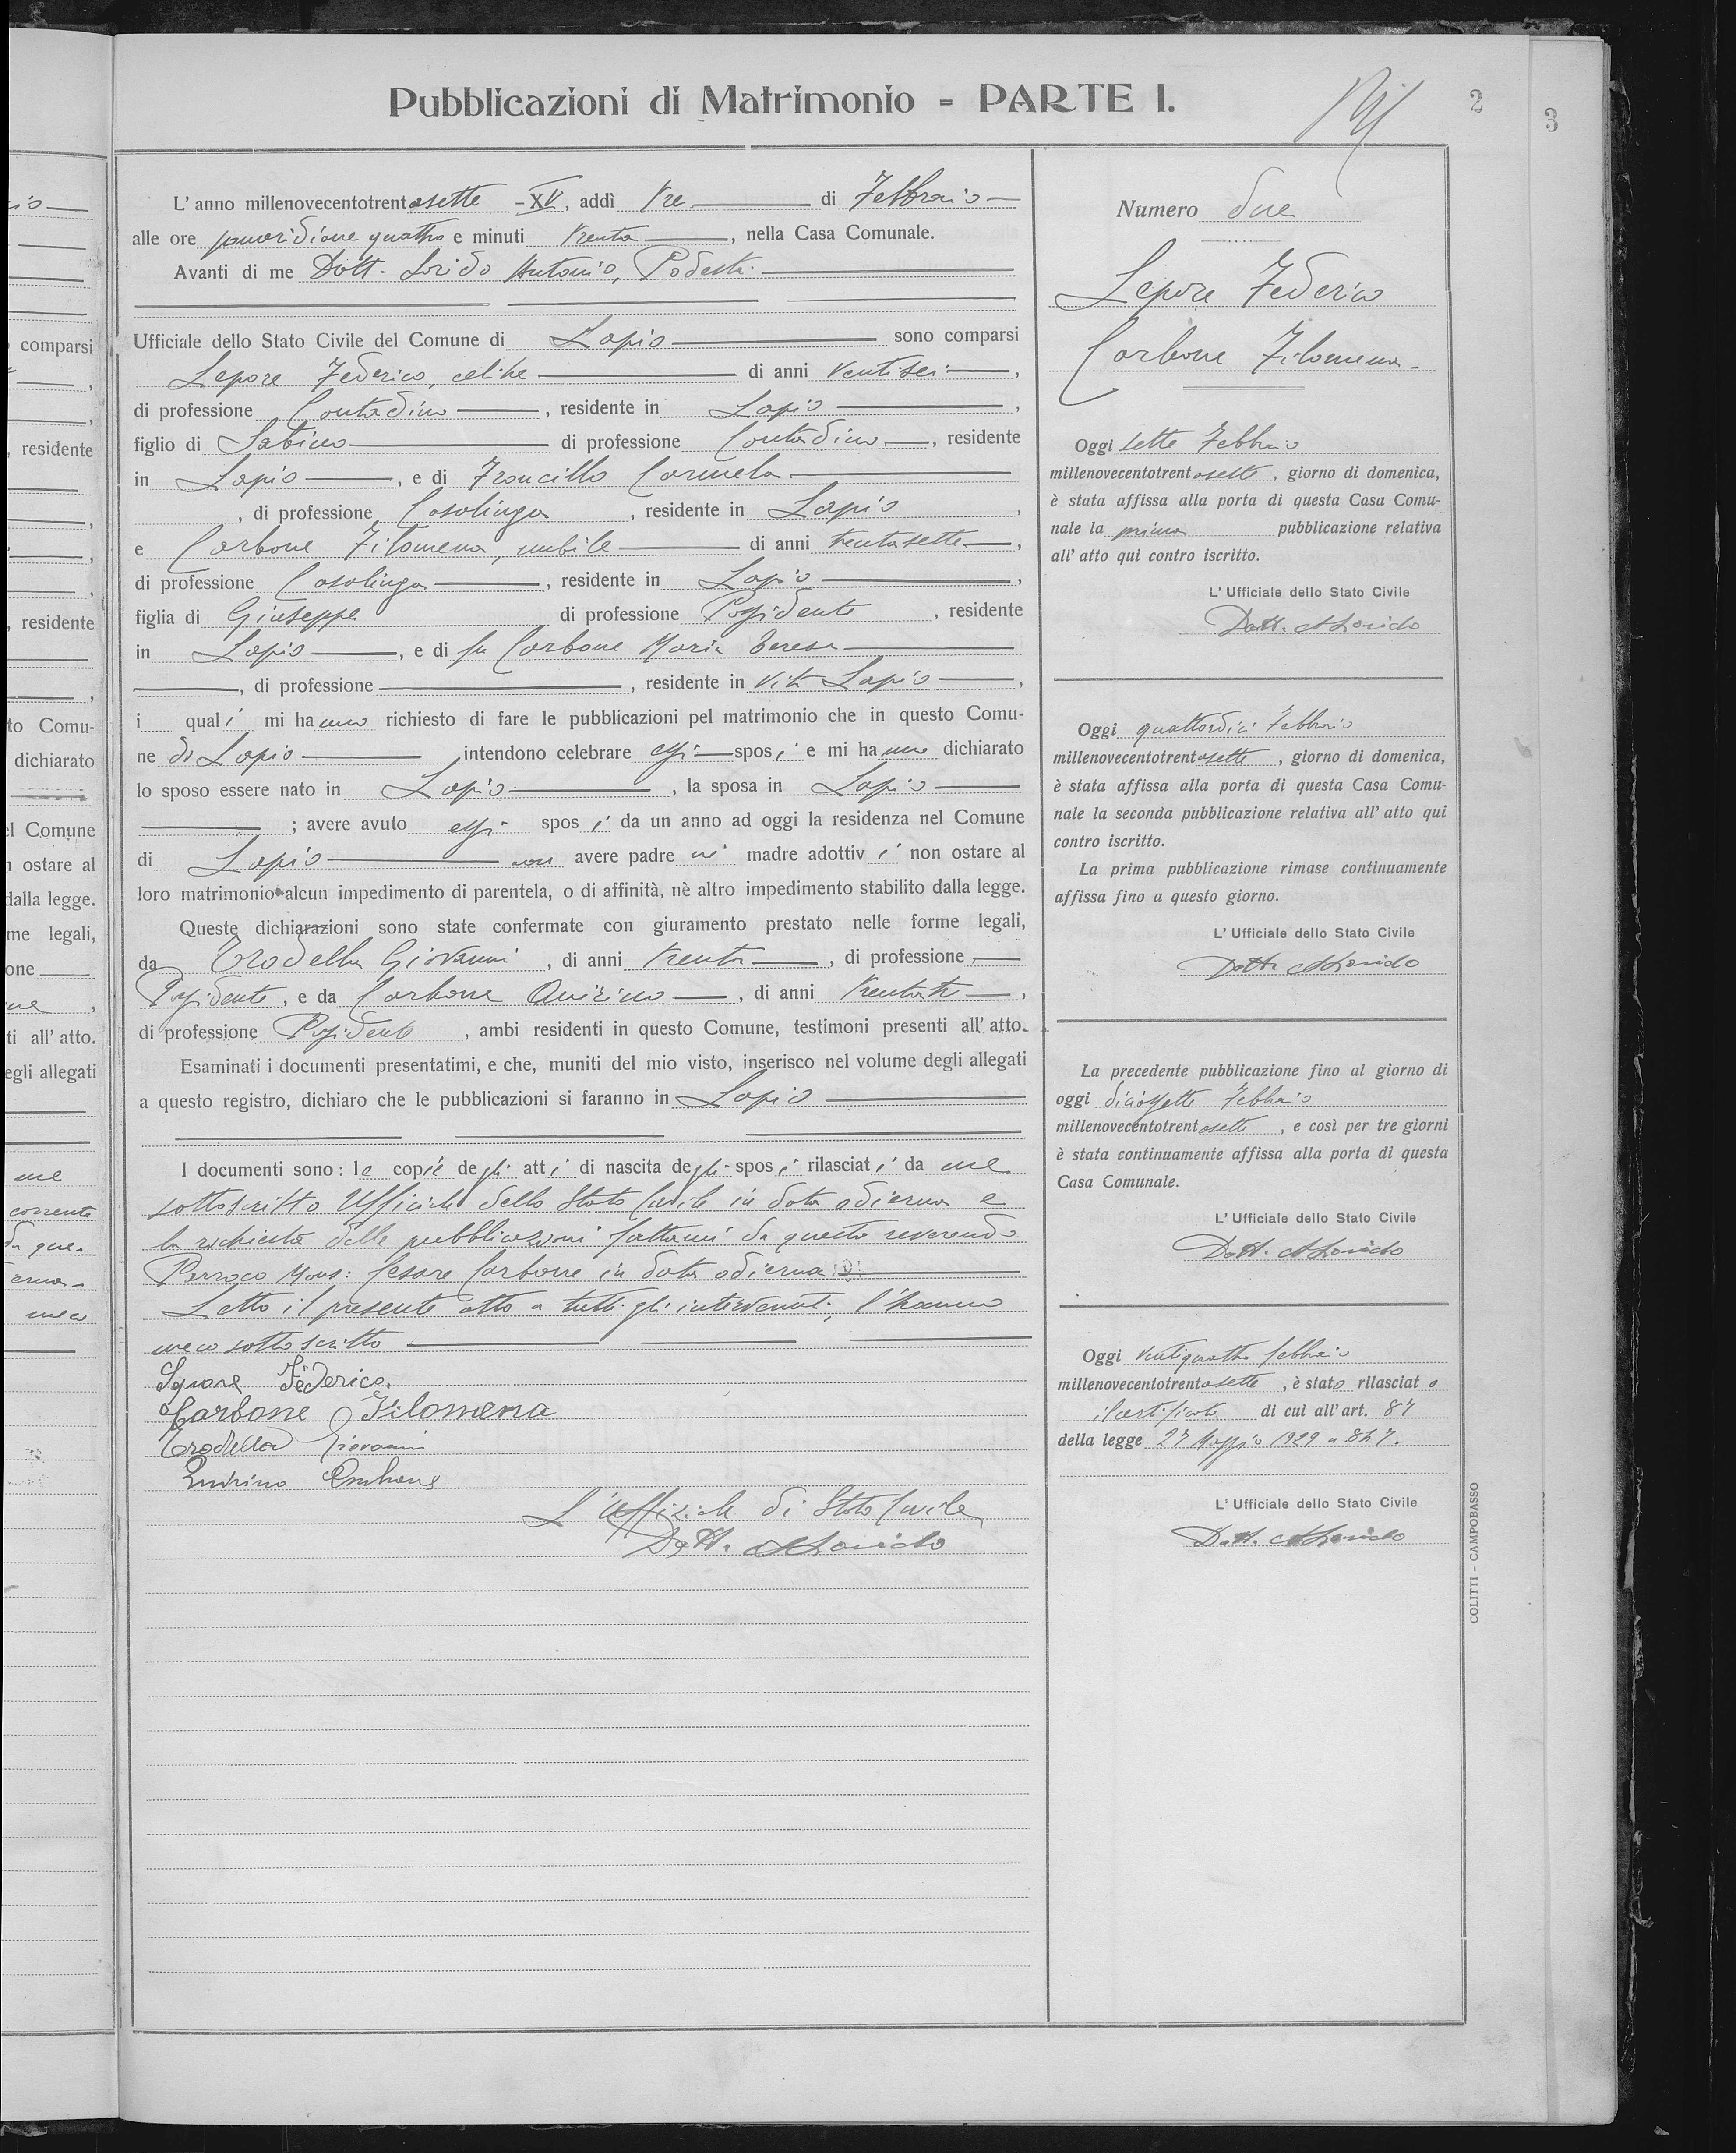 Pubblicazioni di Matrimonio - PARTE I.
2
3
L'anno millenovecentotrentasette - XV, addì tre di Febbraio
alle ore pomeridiane quattro e minuti trenta, nella Casa Comunale.
Avanti di me Dott. Lorido Antonio, Podestà
Ufficiale dello Stato Civile del Comune di Lapio sono comparsi
Lepore Federico, celibe di anni ventisei,
di professione Contadino, residente in Lapio,
figlio di Sabino di professione Contadino, residente
in Lapio, e di Troncillo Carmela
, di professione Casalinga, residente in Lapio,
e Carbone Filomena, nubile di anni trentasette,
di professione Casalinga, residente in Lapio,
figlia di Giuseppe di professione Possidente, residente
in Lapio, e di fu Carbone Maria Teresa
, di professione, residente in vita Lapio,
i quali mi hanno richiesto di fare le pubblicazioni pel matrimonio che in questo Comu-
ne di Lapio intendono celebrare essi sposi e mi hanno dichiarato
lo sposo essere nato in Lapio, la sposa in Lapio
; avere avuto essi sposi da un anno ad oggi la residenza nel Comune
di Lapio non avere padre nè madre adottivi non ostare al
loro matrimonio alcun impedimento di parentela, o di affinità, nè altro impedimento stabilito dalla legge.
Queste dichiarazioni sono state confermate con giuramento prestato nelle forme legali,
da Trodella Giovanni, di anni trenta, di professione
Possidente, e da Carbone Quirino, di anni trentatre,
di professione Possidente, ambi residenti in questo Comune, testimoni presenti all'atto.
Esaminati i documenti presentatimi, e che, muniti del mio visto, inserisco nel volume degli allegati
a questo registro, dichiaro che le pubblicazioni si faranno in Lapio
I documenti sono: le copie degli atti di nascita degli sposi rilasciati da me
sottoscritto Ufficiale dello Stato Civile in data odierna e
la richiesta delle pubblicazioni fattami da questo reverendo
Parroco Mons: Cesare Carbone in data odierna
Letto il presente atto a tutti gli intervenuti, l'hanno
meco sottoscritto
Lepore Federico.
Carbone Filomena
Trodella Giovanni
Quirino Carbone
L'Ufficiale di Stato Civile
Dott. A Lorido
Numero due
Lepore Federico
Carbone Filomena
Oggi sette Febbraio
millenovecentotrentasette, giorno di domenica,
è stata affissa alla porta di questa Casa Comu-
nale la prima pubblicazione relativa
all'atto qui contro iscritto.
L'Ufficiale dello Stato Civile
Dott. A Lorido
Oggi quattordici Febbraio
millenovecentotrentasette, giorno di domenica,
è stata affissa alla porta di questa Casa Comu-
nale la seconda pubblicazione relativa all'atto qui
contro iscritto.
La prima pubblicazione rimase continuamente
affissa fino a questo giorno.
L'Ufficiale dello Stato Civile
Dott. A Lorido
La precedente pubblicazione fino al giorno di
oggi diciassette Febbraio
millenovecentotrentasette, e così per tre giorni
è stata continuamente affissa alla porta di questa
Casa Comunale.
L'Ufficiale dello Stato Civile
Dott. A Lorido
Oggi ventiquattro febbraio
millenovecentotrentasette, è stato rilasciato
il certificato di cui all'art. 87
della legge 27 Maggio 1929 n 847.
L'Ufficiale dello Stato Civile
Dott. A Lorido
COLITTI - CAMPOBASSO
comparsi
residente
, residente
to Comu-
dichiarato
el Comune
n ostare al
dalla legge.
me legali,
one
ti all'atto.
egli allegati
me
corrente